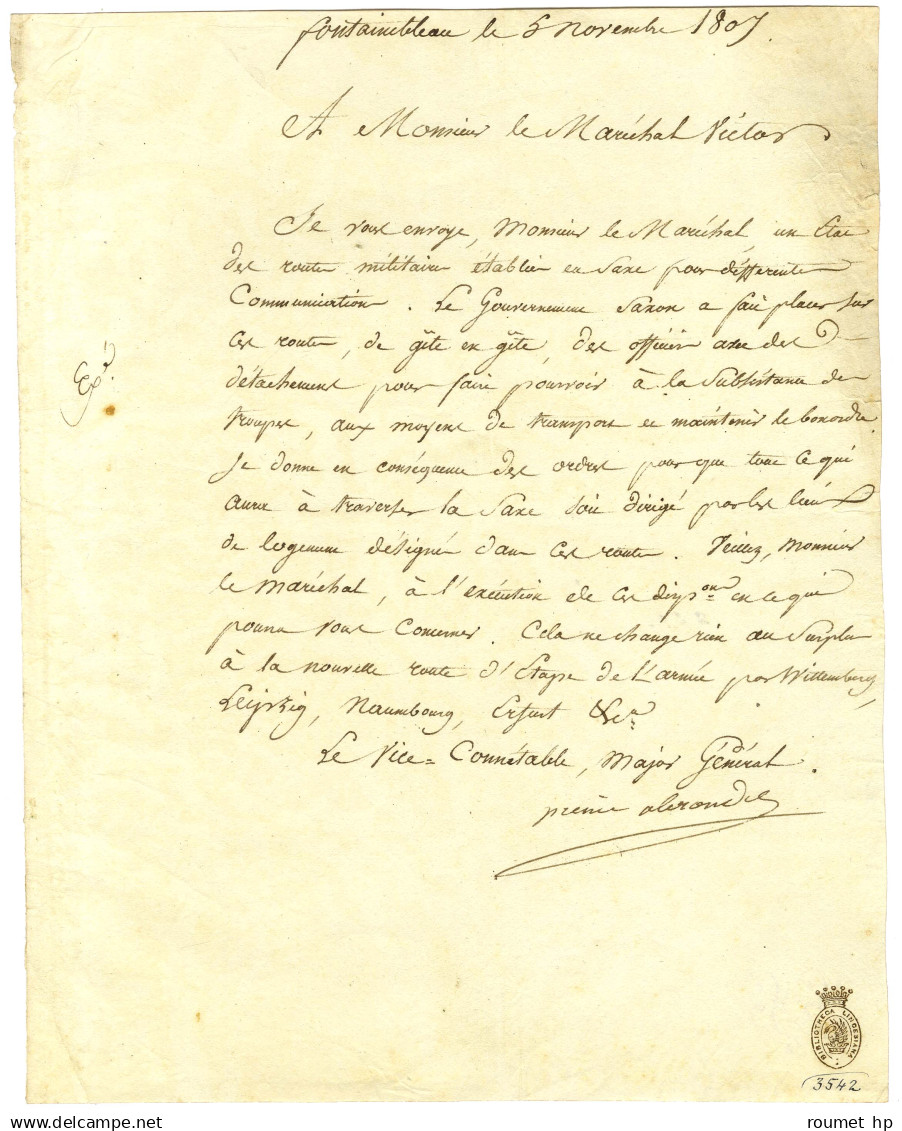 fontainebleau le 5 Novembre 1807
A Monsieur le Maréchal Victor
Je vous envoye, Monsieur le Maréchal un État
des routes militaires établies en Saxe pour différentes
Communications. Le Gouvernement Saxon a fait placer sur
ces routes, de gîte en gîte, des officiers avec des
détachements pour faire pourvoir à la Subsistance des
troupes, aux moyens de transport et maintenir le bon ordre.
Je donne en conséquence des ordres pour que tout ce qui
aura à traverser la Saxe soit dirigé par les lieux
de logement désignés dans ces routes. Veillez, Monsieur
le Maréchal, à l'exécution de ces dispons en ce qui
pourra vous Concerner. Cela ne change rien au Surplus
à la nouvelle route d'Etape de L'armée par Wittemberg,
Leipzig, Naumbourg, Erfurt &ca
Le Vice-Connétable, Major Général.
prince alexandre
Exp.é
BIBLIOTHECA LINDESIANA
3542
roumet hp